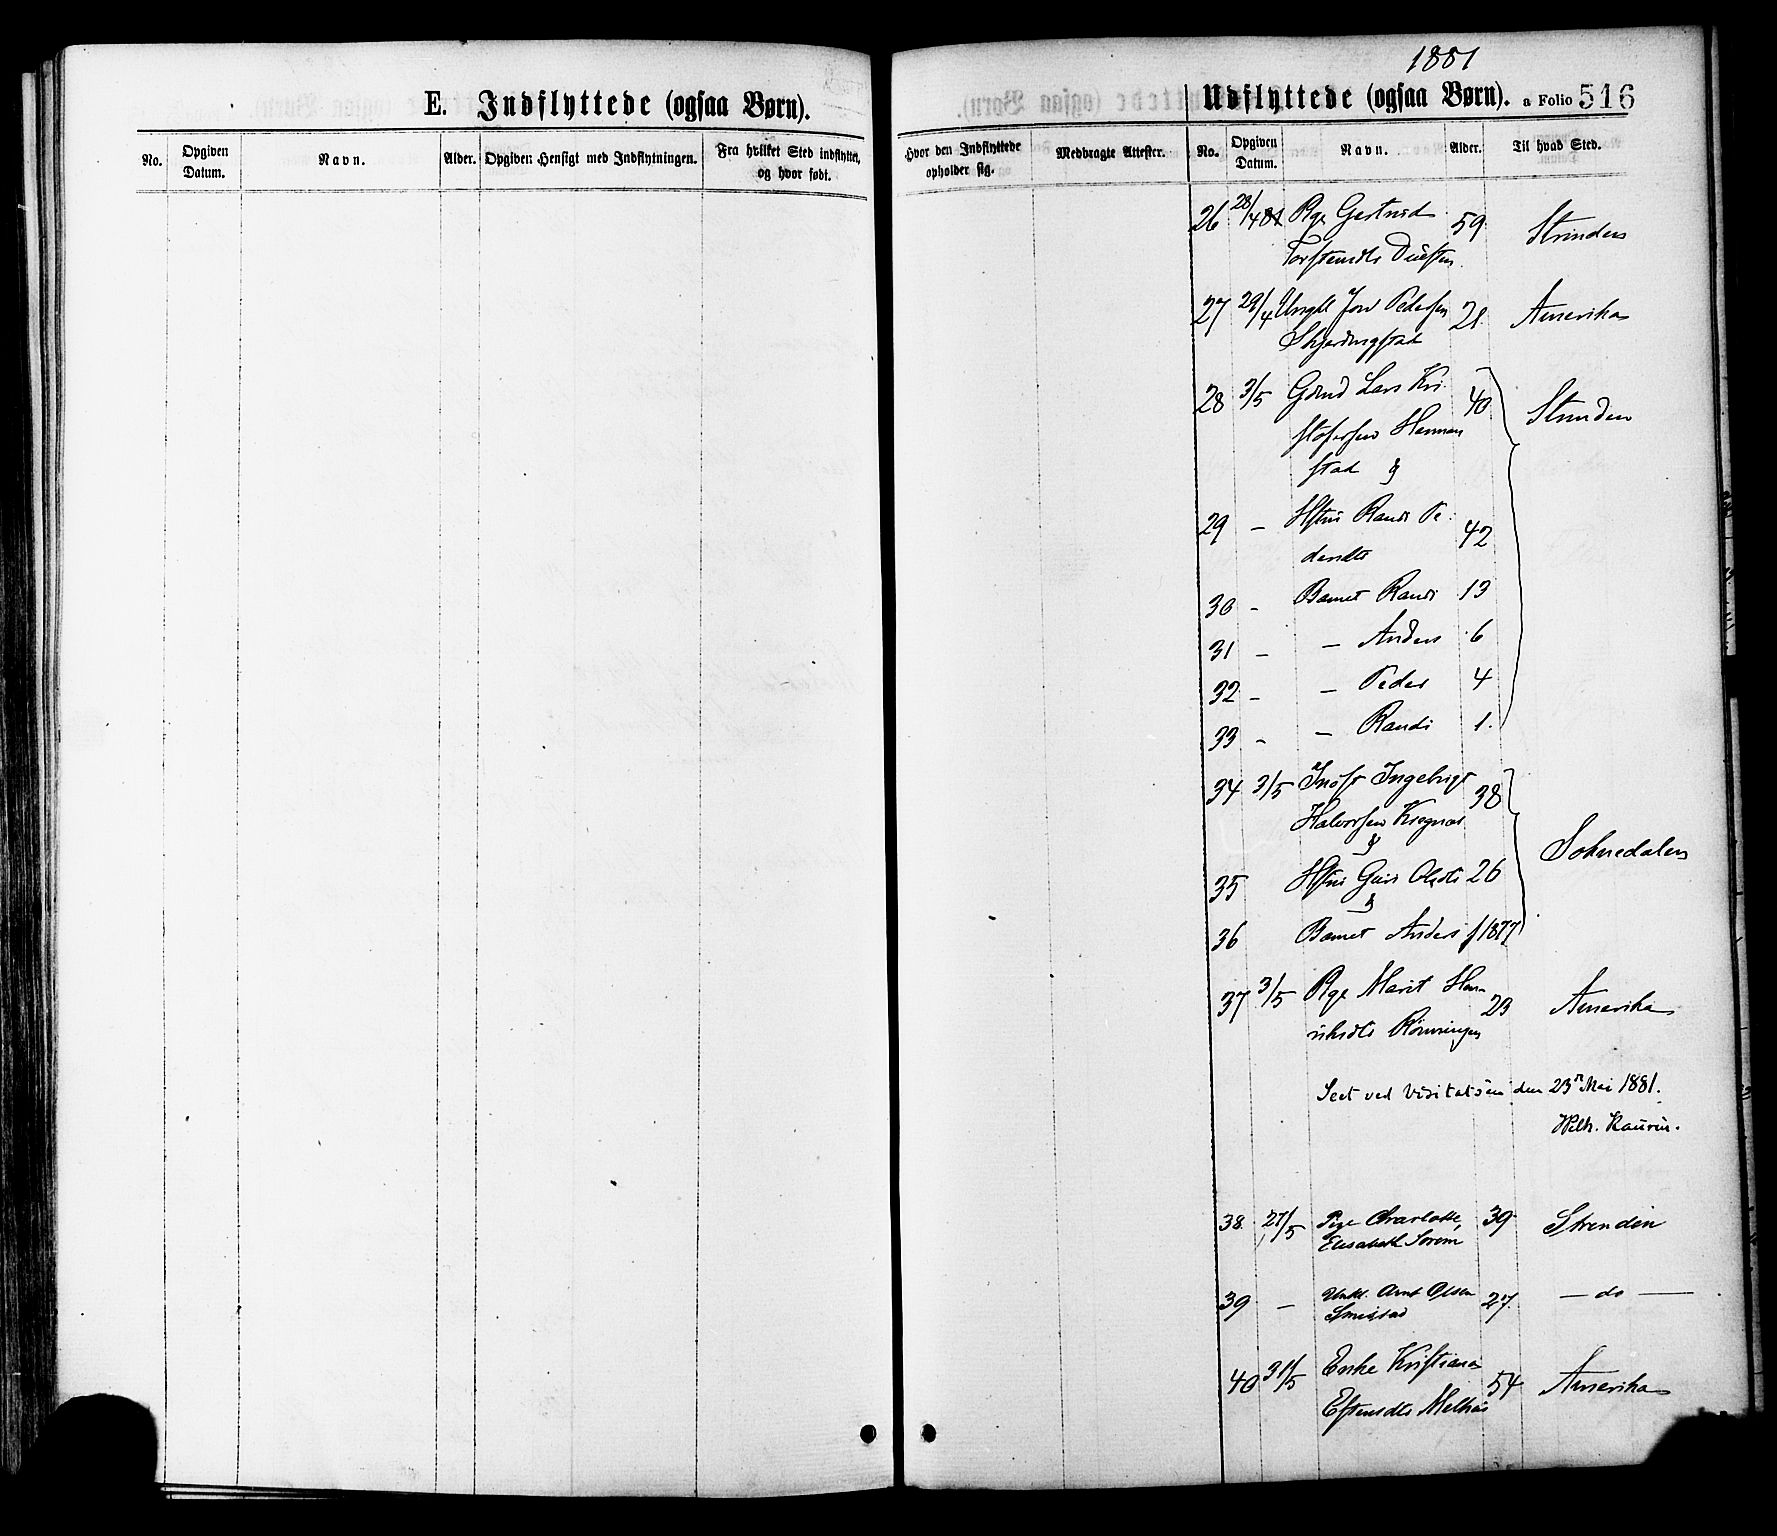 1881
E. Indflyttede (ogsaa Børn).
No.
Opgiven Datum.
Navn.
Alder.
Opgiven Hensigt med Indflytningen.
Fra hvilket Sted indflyttet, og hvor født.
Udflyttede (ogsaa Børn). a Folio 516
Hvor den Indflyttede opholder sig.
Medbragte Attester.
No.
Opgiven Datum.
Navn.
Alder.
Til hvad Sted.
26 28/4 81 Pge Gertrud 59 Strinden
Torstensdtr
27 29/4 Ungkl Jon Pedersen 21 Amerika
Skjerdingstad
28 3/5 Gdmd Lars Kri 40 Strinden
stofersen Herman
stad &
29 - Hstru Randi Pe 42
dersdtr
30 - Barnet Randi 13
31 - - Anders 6
32 - - Peder 4
33 - - Randi 1.
34 3/5 Indst Ingebrigt 38 Soknedalen
Halvorsen Kregnes
&
35 Hstru Guri Olsdtr 26
&
36 Barnet Anders f 1877
37 3/5 Pge Marit Hen 23 Amerika
riksdtr Rönningen
Seet ved Visitatsen den 23de Mai 1881.
Wilh. Kaurin.
38. 27/5 Pige Charlotte 39 Strinden
Elisabeth Sorem
39 - Unkl. Arnt Olsen 27. - do -
40 31/5 Enke Kristiana 54 Amerika
Estensdtr Melhus